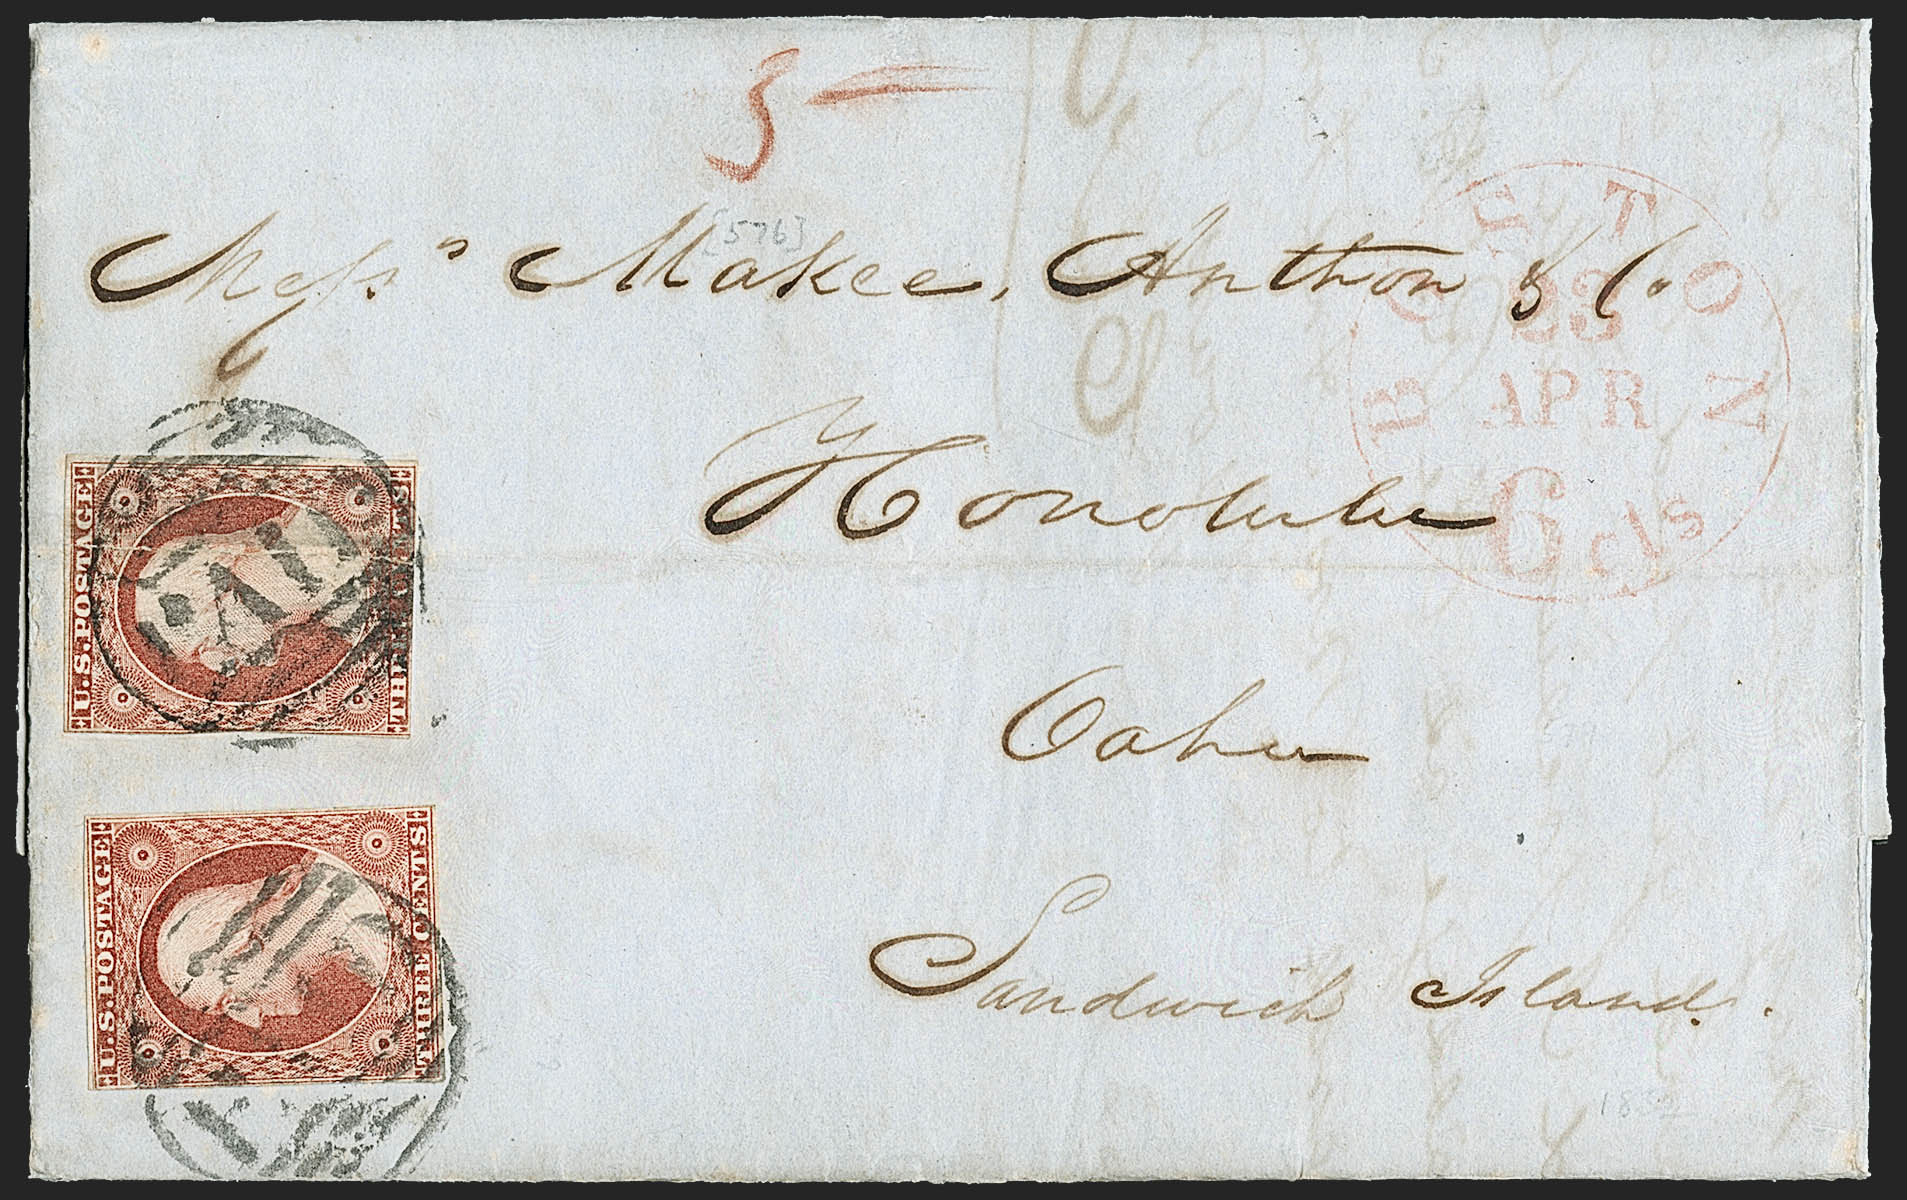 5
[576]
Mess.rs Makee, Anthon & Co.
Honolulu
Oahu
Sandwich Islands.
BOSTON
23
APR
6 cts
U.S. POSTAGE
THREE CENTS
PAID
U.S. POSTAGE
THREE CENTS
1852